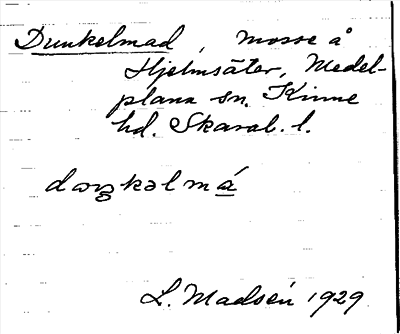 Dunkelmad, mosse å
Hjelmsäter, Medel-
plana sn. Kinne
hd. Skarab. l.
L. Madsén 1929